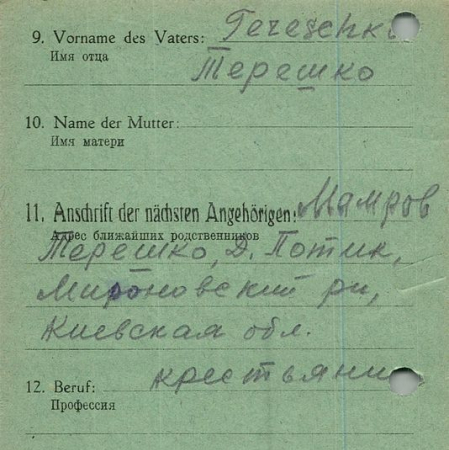 9. Vorname des Vaters: Tereschko
Имя отца
Терешко
10. Name der Mutter:
Имя матери
11. Anschrift der nächsten Angehörigen: Мамров
Адрес ближайших родственников
Терешко, Д. Потик,
Мироновский рн,
Киевская обл.
12. Beruf: крестьянин
Профессия